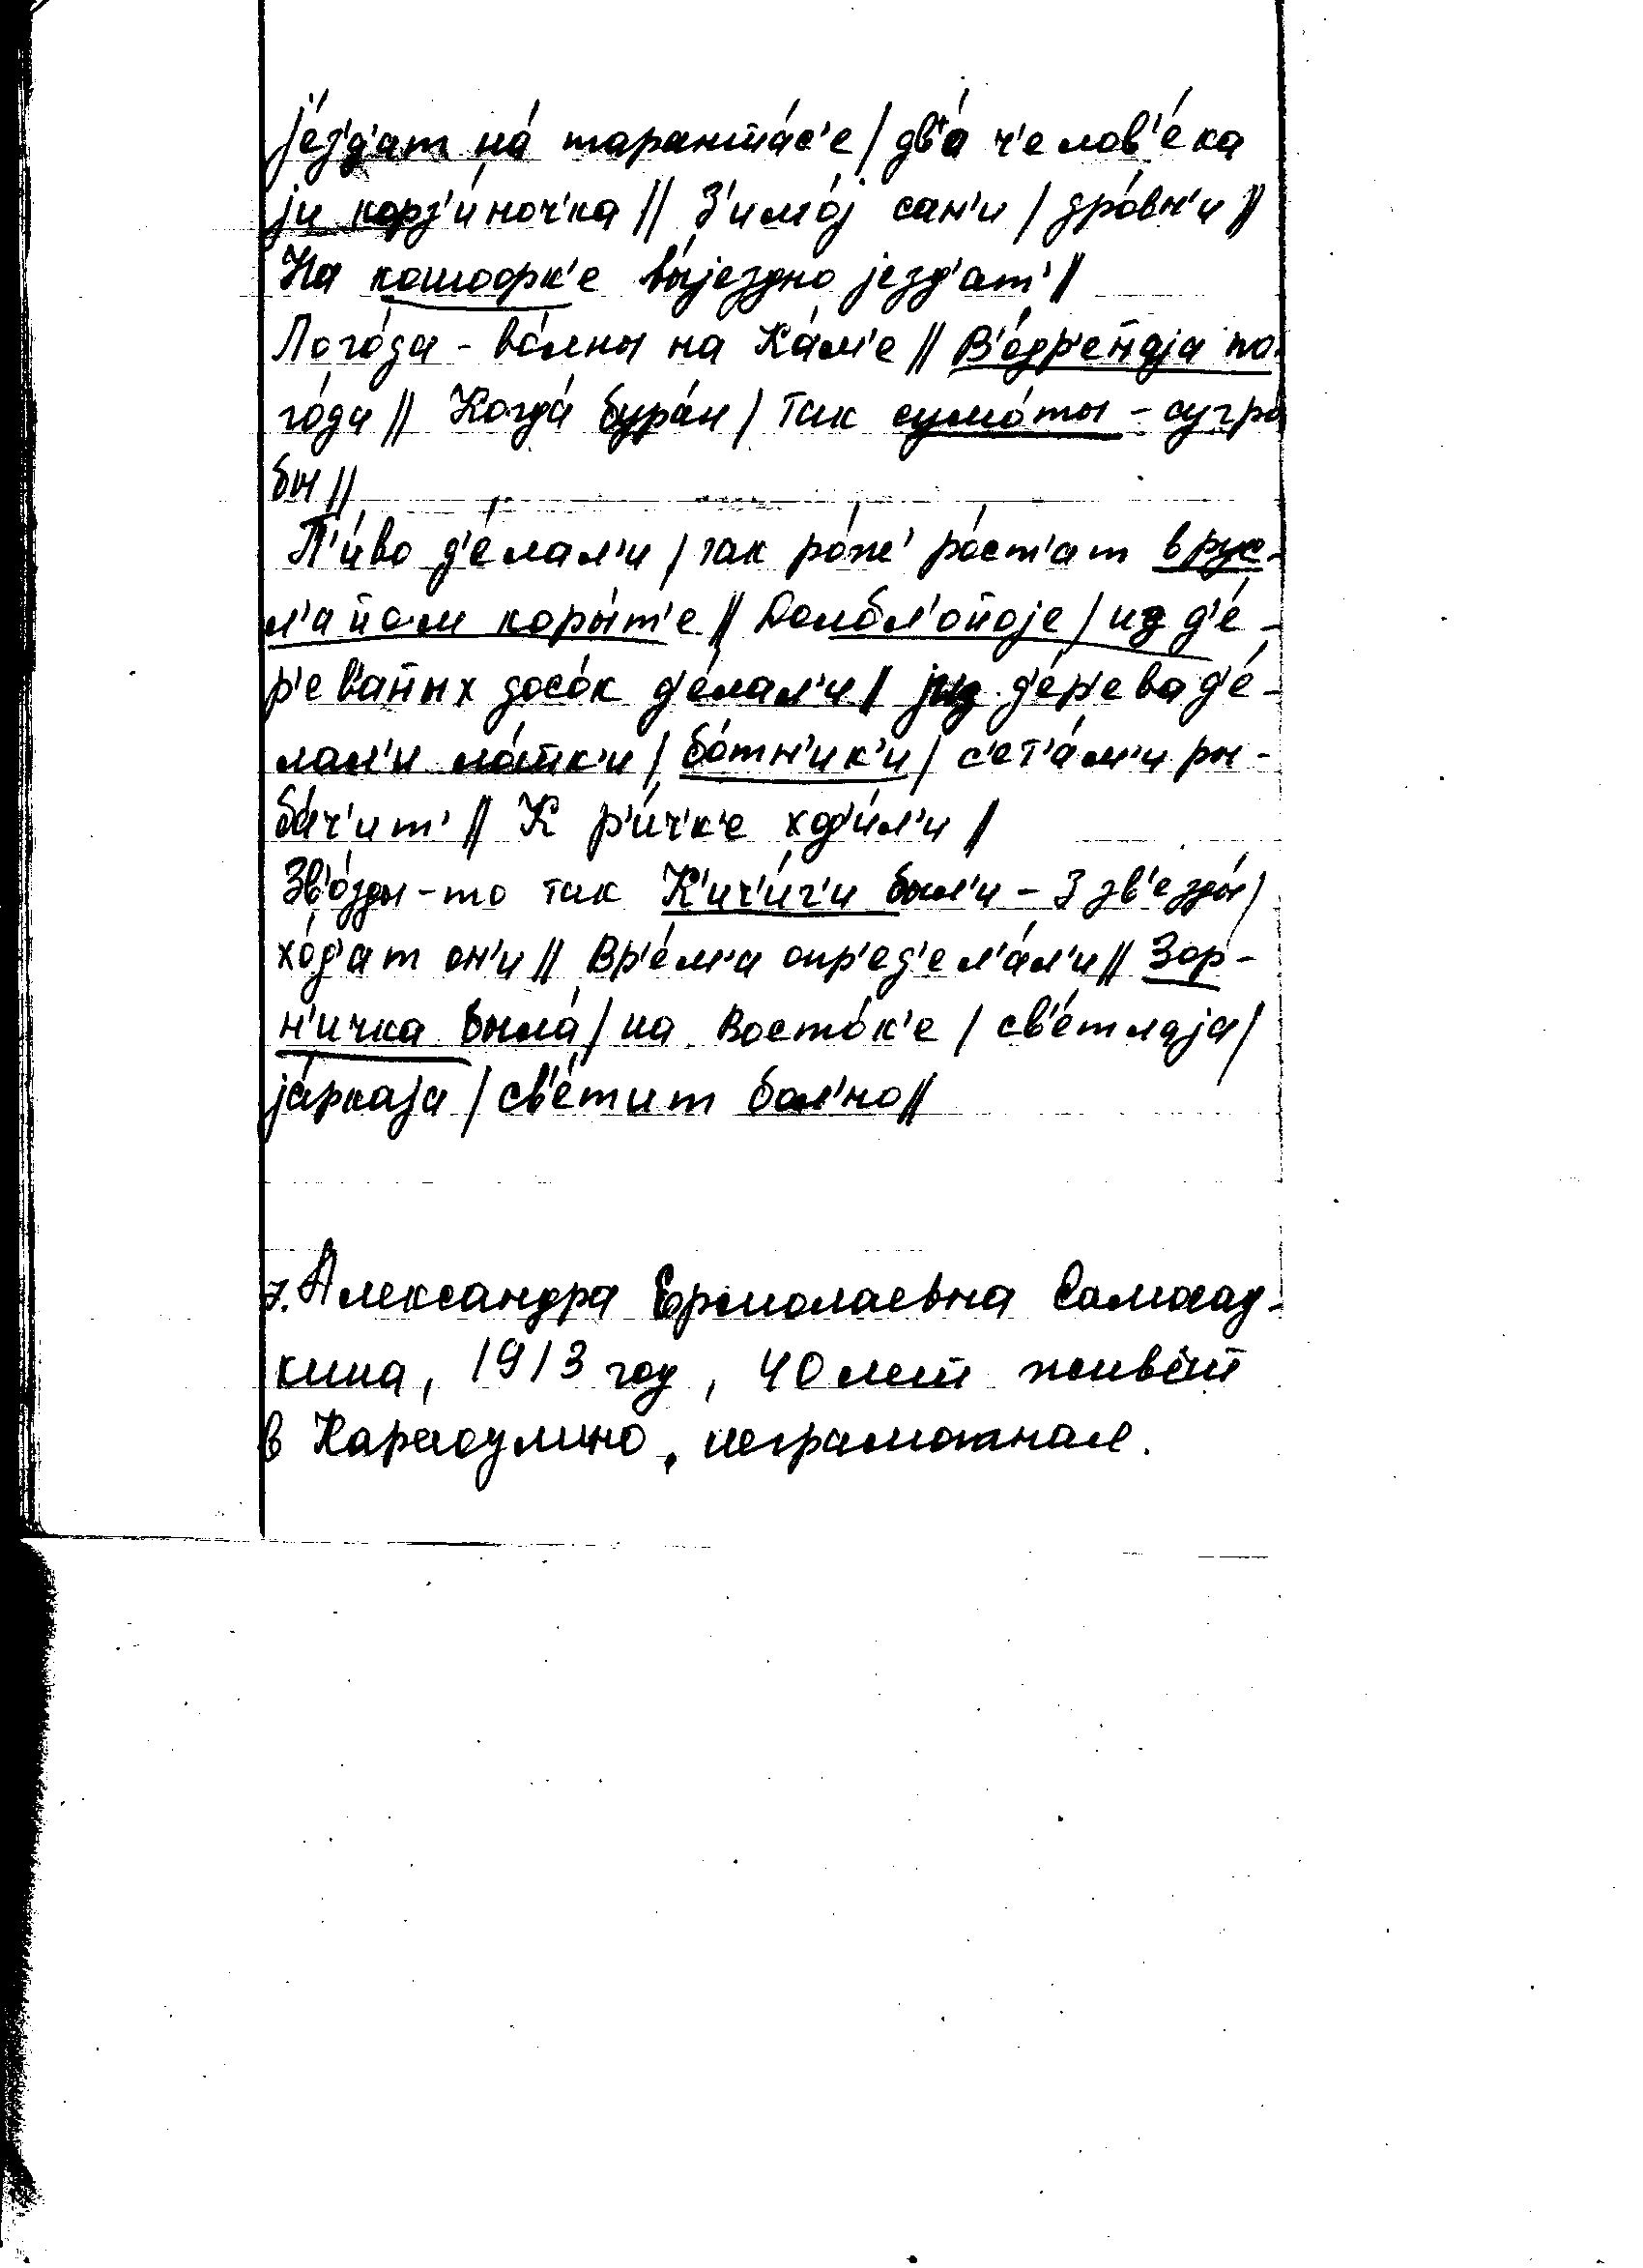 је́з'д'ат на́ таранта́с'е / два́ ч'елов'е́ка
ји корз'и́ноч'ка // З'имо́ј сан'и / дро́вн'и //
На кошоорк'е вы́јездно језд'ат' //
Пого́да - во́лны на Ка́м'е // В'о́др'енаја по-
го́да // Когда́ бура́н / так сумо́ты - сугро
бы //
П'и́во д'е́лал'и / так ро́ж' ро́ст'ат в рус-
л'аном коры́т'е // Долбл'оноје / из д'е́-
р'ев'аных досо́к д'е́лал'и / јиз д'е́р'ева д'е́-
лал'и ло́тк'и / бо́тн'ик'и / с'ет'а́м'и ры-
ба́ч'ит' // К р'и́чк'е ход'и́л'и //
Зв'о́зды-то так К'ич'и́г'и был'и - 3 зв'езды́ /
хо́д'ат он'и // Вр'е́м'а опр'ед'ел'а́л'и // Зор-
н'ичка была́ / на восто́к'е / св'е́тлаја /
ја́ркаја / св'е́тит бол'но //
7. Александра Ермолаевна Самосад-
кина, 1913 год, 40 лет живёт
в Караулино, неграмотная.